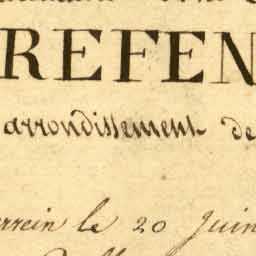 REFEN
arrondissement de
rrein le 20 Juin